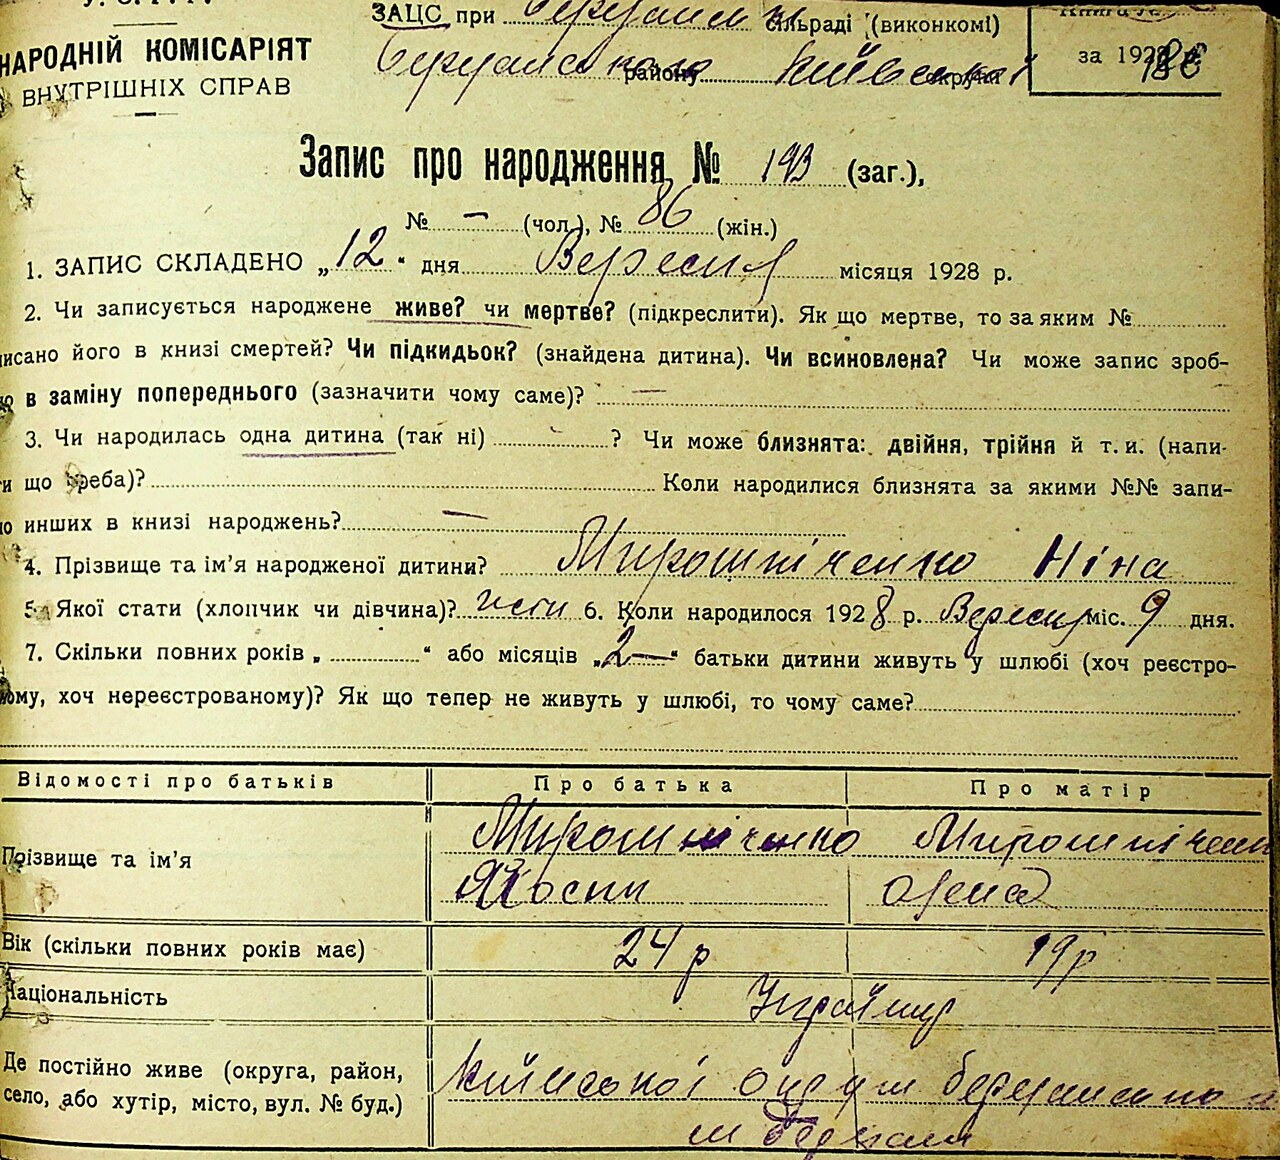 У. С. Р. Р.
НАРОДНІЙ КОМІСАРІЯТ
ВНУТРІШНІХ СПРАВ
ЗАЦС при сільраді (виконкомі)
району Київської округи
Книга №
за 1928
Запис про народження № 193 (заг.),
№ — (чол.), № 86 (жін.)
1. ЗАПИС СКЛАДЕНО „12“ дня Вересня місяця 1928 р.
2. Чи записується народжене живе? чи мертве? (підкреслити). Як що мертве, то за яким №
писано його в книзі смертей? Чи підкидьок? (знайдена дитина). Чи всиновлена? Чи може запис зроб-
но в заміну попереднього (зазначити чому саме)? —
3. Чи народилась одна дитина (так ні) ? Чи може близнята: двійня, трійня й т. и. (напи-
и що треба)? Коли народилися близнята за якими №№ запи-
но инших в книзі народжень? —
4. Прізвище та ім’я народженої дитини? Мирошніченко Ніна
5. Якої стати (хлопчик чи дівчина)? 6. Коли народилося 1928 р. Вересня міс. 9 дня.
7. Скільки повних років „ “ або місяців „2—“ батьки дитини живуть у шлюбі (хоч реєстро-
ному, хоч нереєстрованому)? Як що тепер не живуть у шлюбі, то чому саме?
Відомості про батьків Про батька Про матір
Прізвище та ім’я Мирошниченко Мирошніченко
Олена
Вік (скільки повних років має) 24 р 19 р
Національність
Де постійно живе (округа, район,
село, або хутір, місто, вул. № буд.) Київської округи